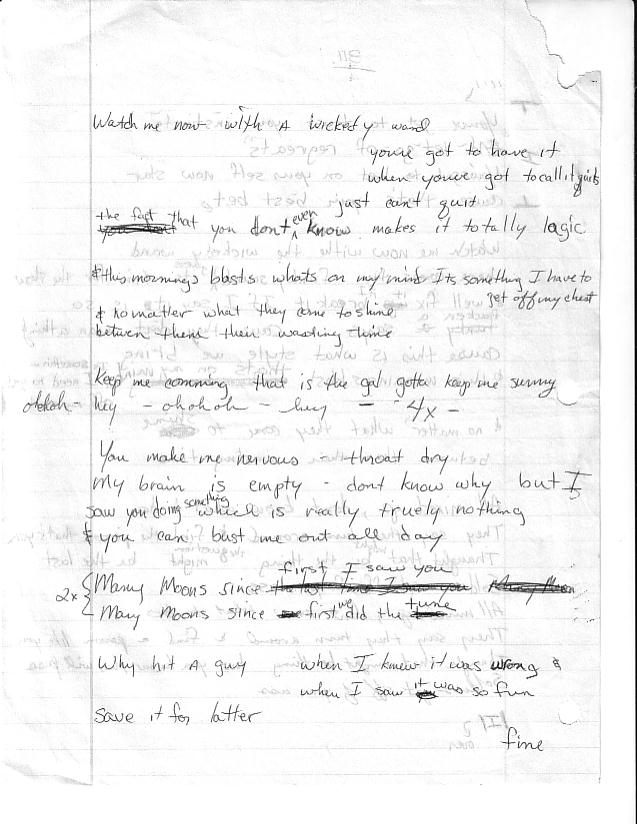 Watch me now with A wickedy wand
youre got to have it
when youve got to call it quits
just can't quit
the fact that you dont even know makes it totally logic
& this mornings blasts whats on my mind Its something I have to
get off my chest
& no matter what they come to shine
between them their wasting time
Keep me comming that is the gal gotta keep me sunny
ohhoh - hey - ohohoh - hey - - 4x -
You make me nervous - throat dry
My brain is empty - dont know why but I
saw you doing something which is really truely nothing
& you can bust me out all day
first I saw you
2x { Many Moons since the last time I saw you Many Moon
Many Moons since first we did the tune
Why hit A guy when I knew it was wrong &
when I saw it was so fun
save it for latter
fine